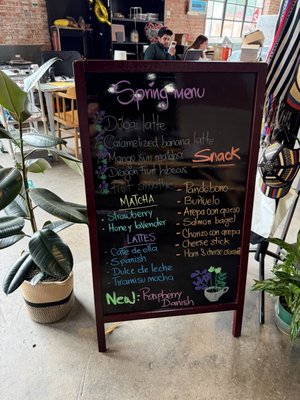 Spring menu
Dubai latte
Caramelized banana latte
Mango sun matcha
Dragon fruit hibiscus
Fruit smoothie
MATCHA
- Strawberry
- Honey lavender
LATTES
- Café de olla
- Spanish
- Dulce de leche
- Tiramisu mocha
New: Raspberry
Danish
Snack
- Pandebono
- Buñuelo
- Arepa con queso
- Salmon bagel
- Chorizo con arepa
- Cheese stick
- Ham & cheese